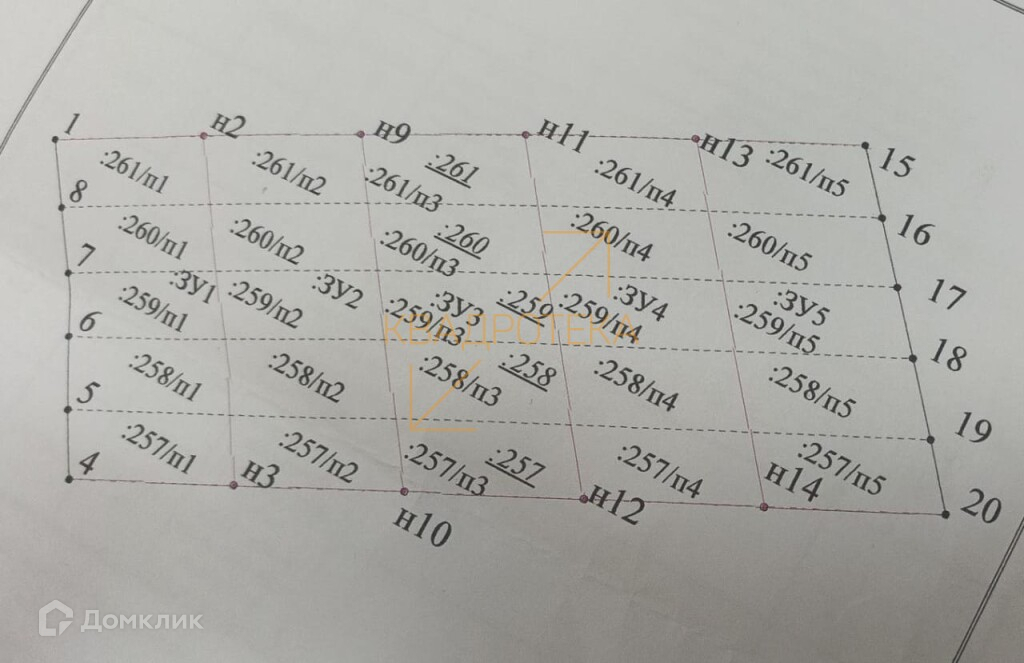 1 н2 н9 н11 н13 15
:261/п1 :261/п2 :261/п3 :261 :261/п4 :261/п5
8 16
:260/п1 :260/п2 :260/п3 :260 :260/п4 :260/п5
7 17
:ЗУ1 :ЗУ2 :ЗУ3 :ЗУ4 :ЗУ5
:259/п1 :259/п2 :259/п3 :259 :259/п4 :259/п5
КВАДРОТЕКА
6 18
:258/п1 :258/п2 :258/п3 :258 :258/п4 :258/п5
5 19
:257/п1 :257/п2 :257/п3 :257 :257/п4 :257/п5
4 н3 н10 н12 н14 20
Домклик